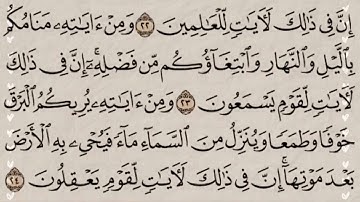 إِنَّ فِي ذَٰلِكَ لَآيَاتٍ لِّلْعَالِمِينَ ٢٢ وَمِنْ ءَايَاتِهِۦ مَنَامُكُم
بِٱلَّيْلِ وَٱلنَّهَارِ وَٱبْتِغَآؤُكُم مِّن فَضْلِهِۦٓ ۚ إِنَّ فِي ذَٰلِكَ
لَآيَاتٍ لِّقَوْمٍ يَسْمَعُونَ ٢٣ وَمِنْ ءَايَاتِهِۦ يُرِيكُمُ ٱلْبَرْقَ
خَوْفًا وَطَمَعًا وَيُنَزِّلُ مِنَ ٱلسَّمَآءِ مَآءً فَيُحْيِۦ بِهِ ٱلْأَرْضَ
بَعْدَ مَوْتِهَآ ۚ إِنَّ فِي ذَٰلِكَ لَآيَاتٍ لِّقَوْمٍ يَعْقِلُونَ ٢٤